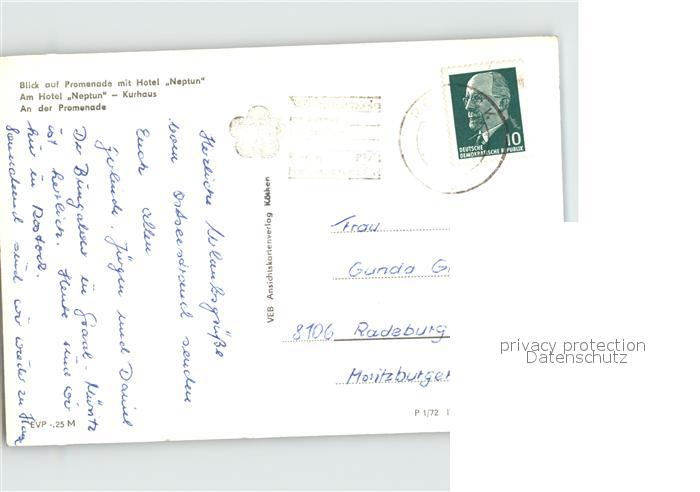 Blick auf Promenade mit Hotel „Neptun"
Am Hotel „Neptun" – Kurhaus
An der Promenade
Herzliche Urlaubsgrüße
vom Ostseestrand senden
Euch allen
Gerlinde, Jürgen und Daniel
Der Bungalow in Graal-Müritz
ist herrlich. Heute sind wir
hier in Rostock.
Sonnabend sind wir wieder zu Haus
EVP -,25 M
VEB Ansichtskartenverlag Köthen
10
DEUTSCHE
DEMOKRATISCHE REPUBLIK
Frau
Gunda G
8106 Radeburg
Moritzburger
P 1/72
privacy protection
Datenschutz